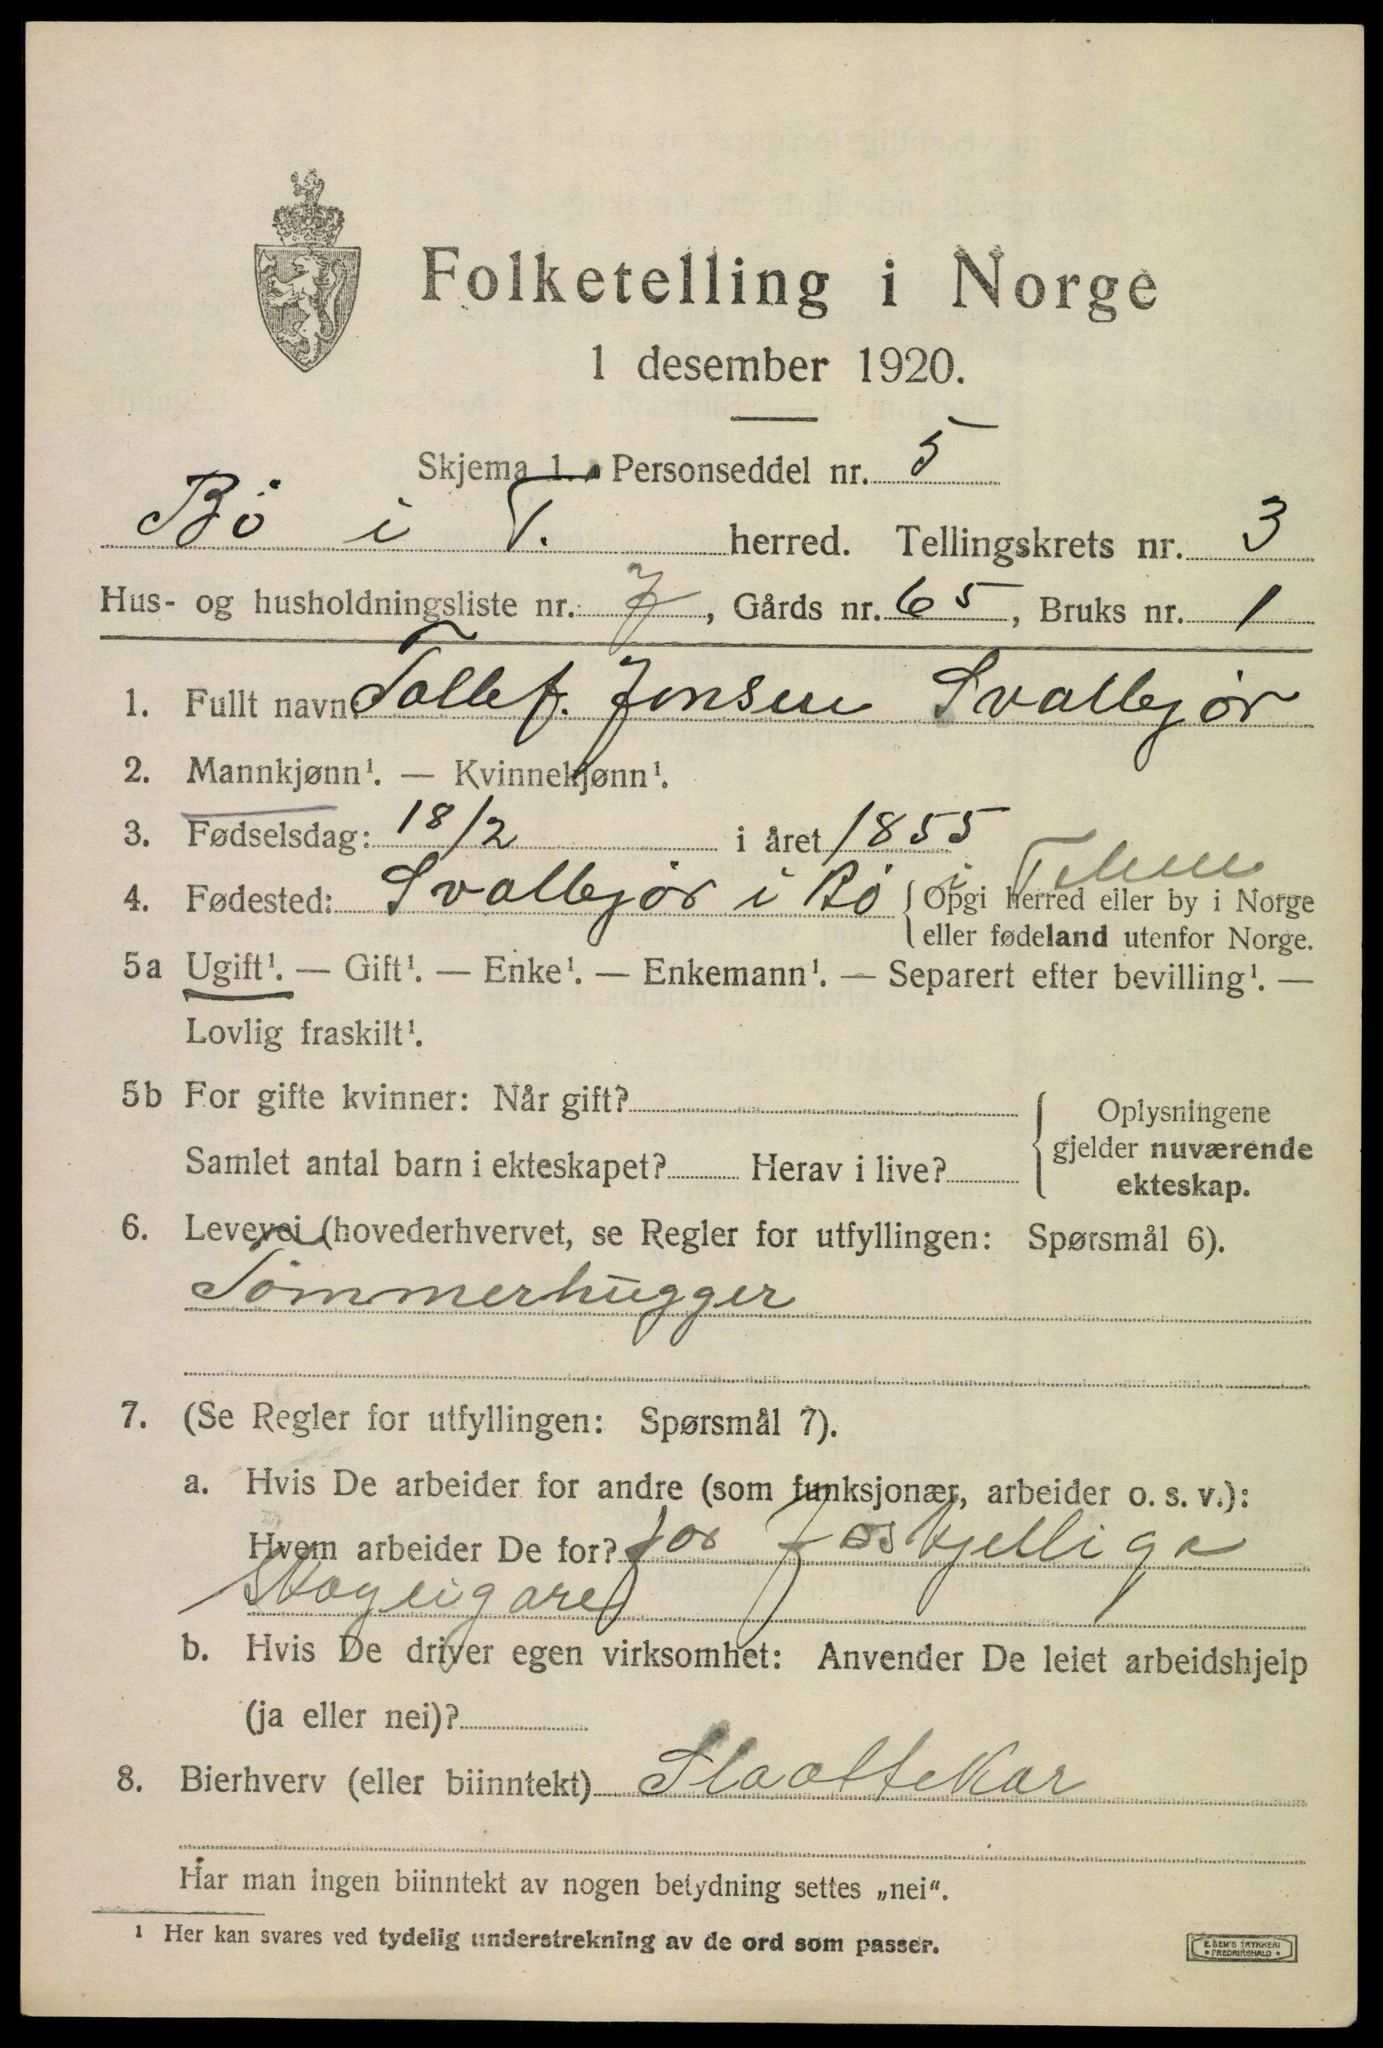 Folketelling i Norge
1 desember 1920.
Skjema 1. Personseddel nr. 5
Bö i T. herred. Tellingskrets nr. 3
Hus- og husholdningsliste nr. 7, Gårds nr. 65, Bruks nr. 1
1. Fullt navn: Tollef. Jonsen Svallejör
2. Mannkjønn¹. — Kvinnekjønn¹.
3. Fødselsdag: 18/2 i året 1855
4. Fødested: Svallejör i Bö i Telem { Opgi herred eller by i Norge
eller fødeland utenfor Norge.
5a Ugift¹. — Gift¹. — Enke¹. — Enkemann¹. — Separert efter bevilling¹. —
Lovlig fraskilt¹.
5b For gifte kvinner: Når gift?
Samlet antal barn i ekteskapet? Herav i live?
{ Oplysningene
gjelder nuværende
ekteskap.
6. Levevei (hovederhvervet, se Regler for utfyllingen: Spørsmål 6).
Tömmerhugger
7. (Se Regler for utfyllingen: Spørsmål 7).
a. Hvis De arbeider for andre (som funksjonær, arbeider o. s. v.):
Hvem arbeider De for? for forskjellige
Skogeigare
b. Hvis De driver egen virksomhet: Anvender De leiet arbeidshjelp
(ja eller nei)?
8. Bierhverv (eller biinntekt) Slaattekar
Har man ingen biinntekt av nogen betydning settes „nei“.
¹ Her kan svares ved tydelig understrekning av de ord som passer.
E. SEM'S TRYKKERI
FREDRIKSHALD